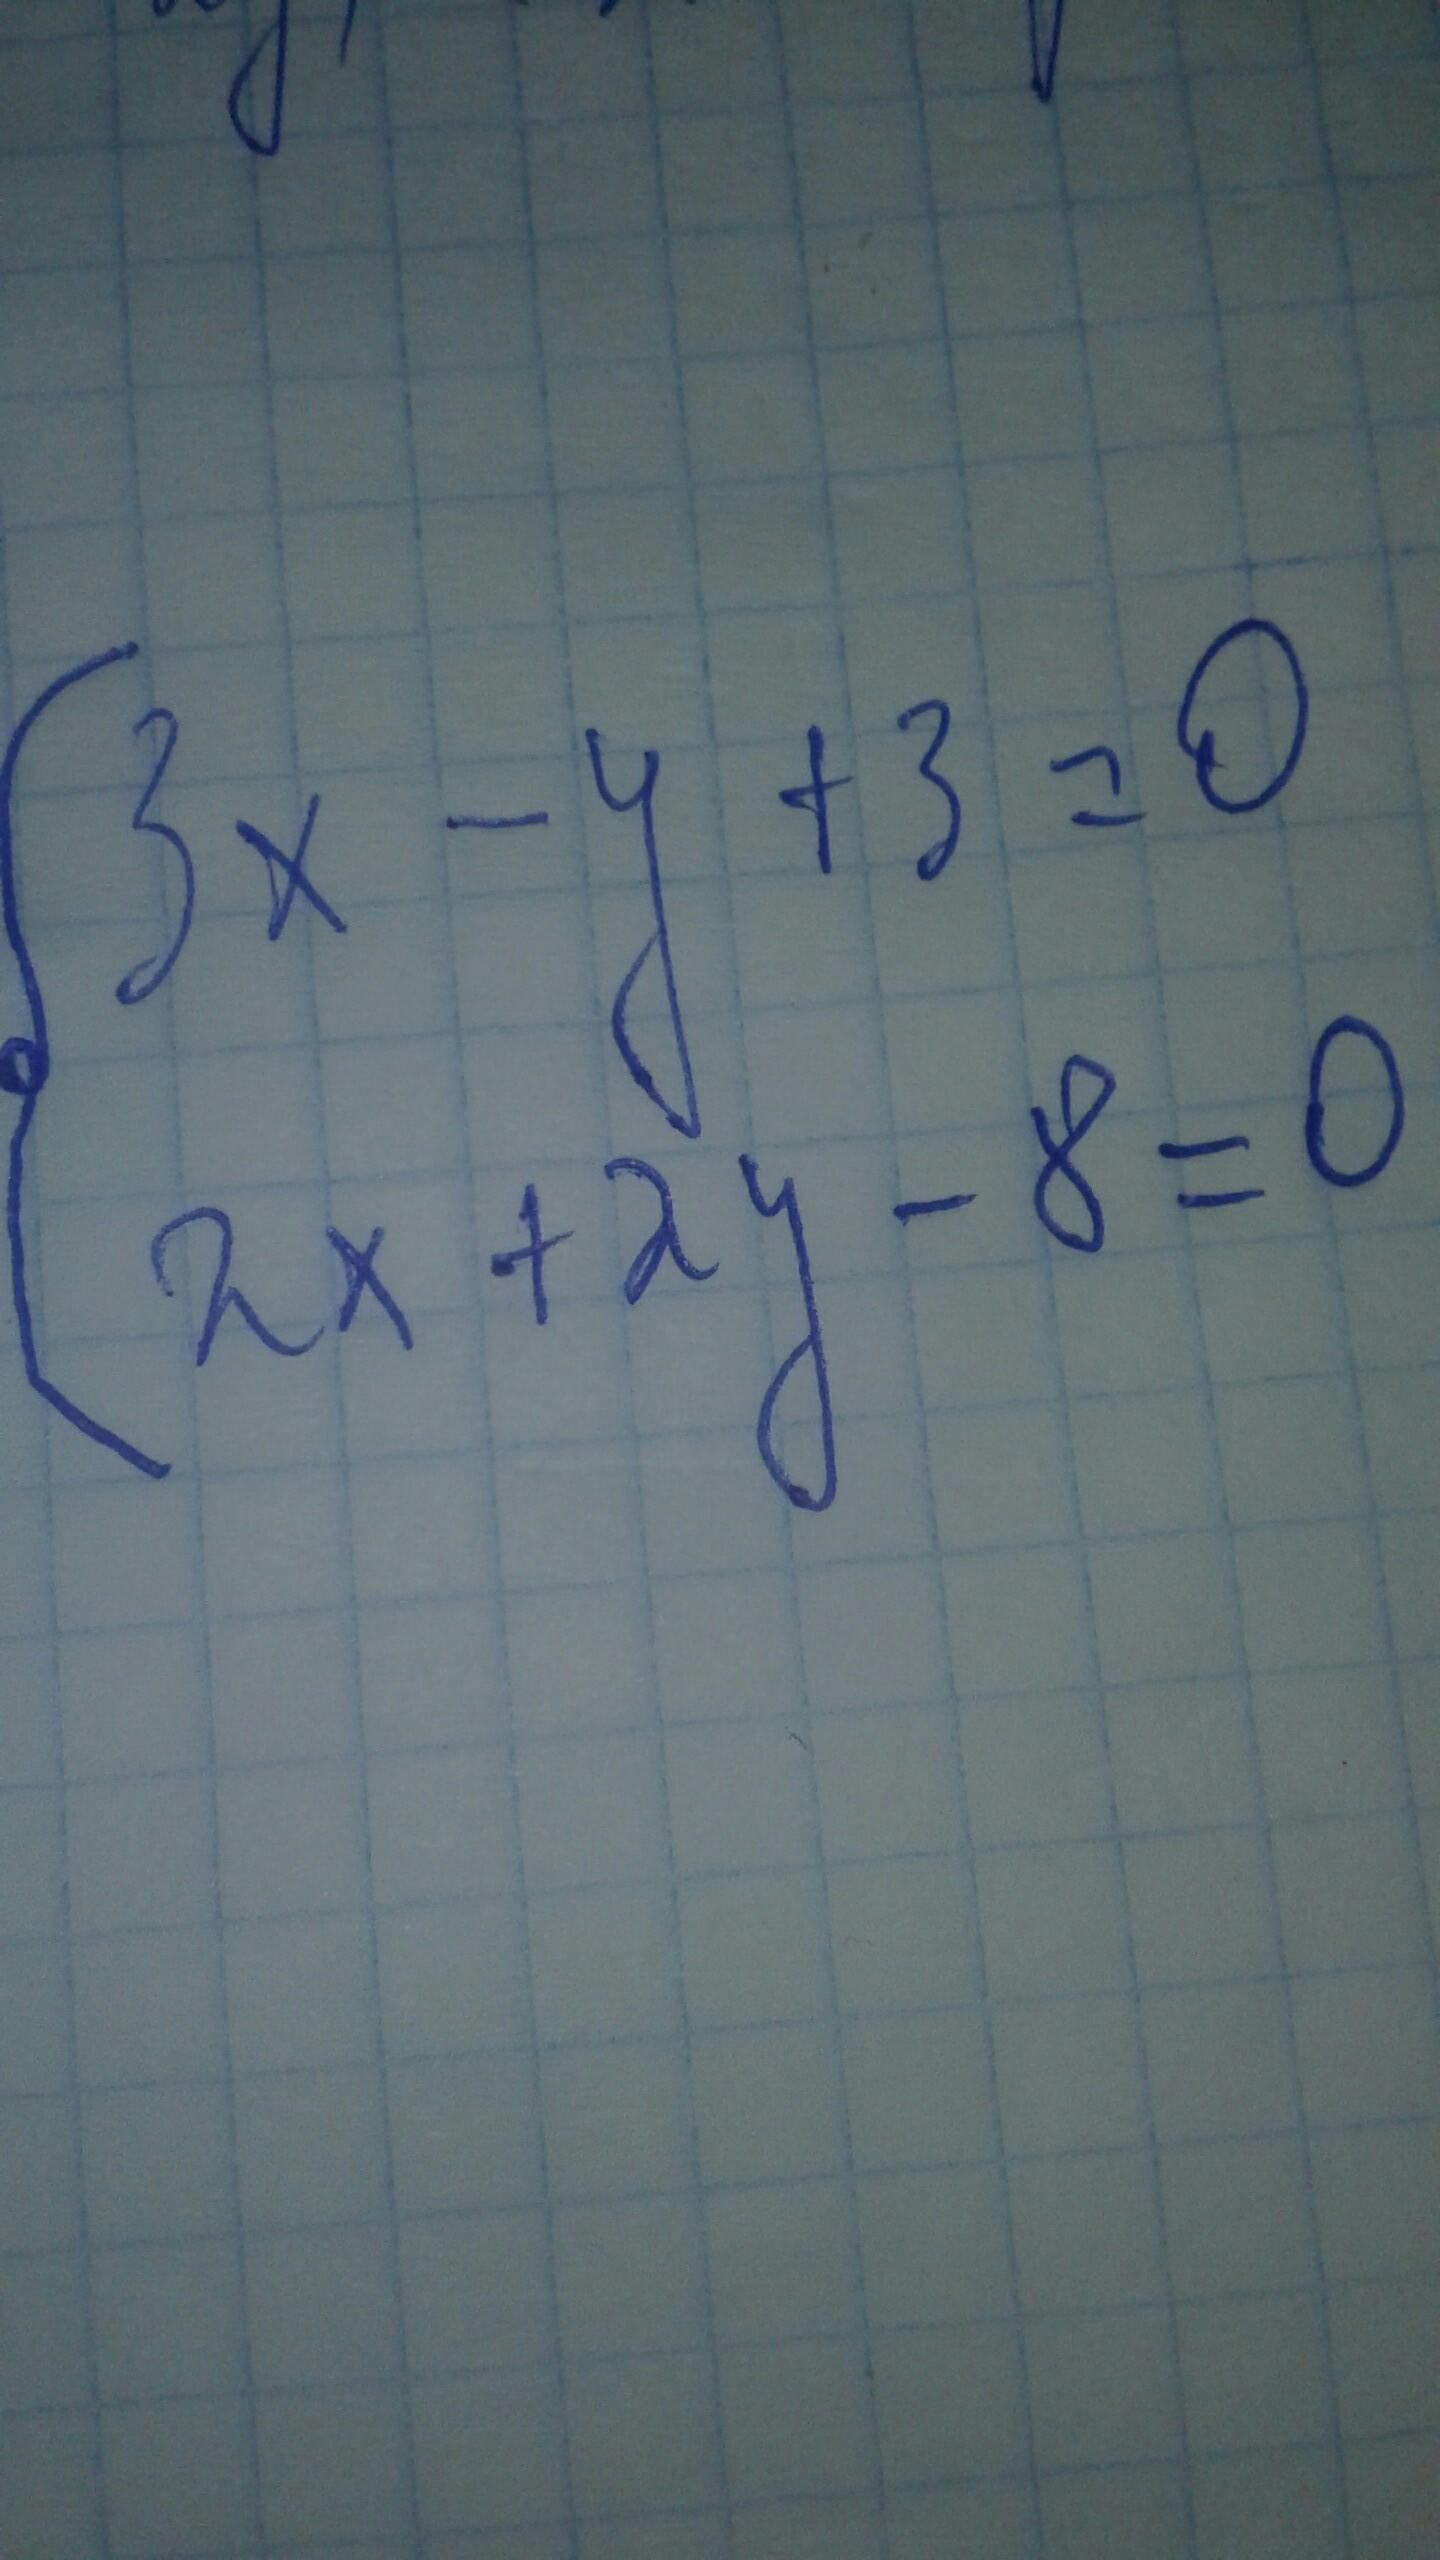 3x - y + 3 = 0
2x + 2y - 8 = 0